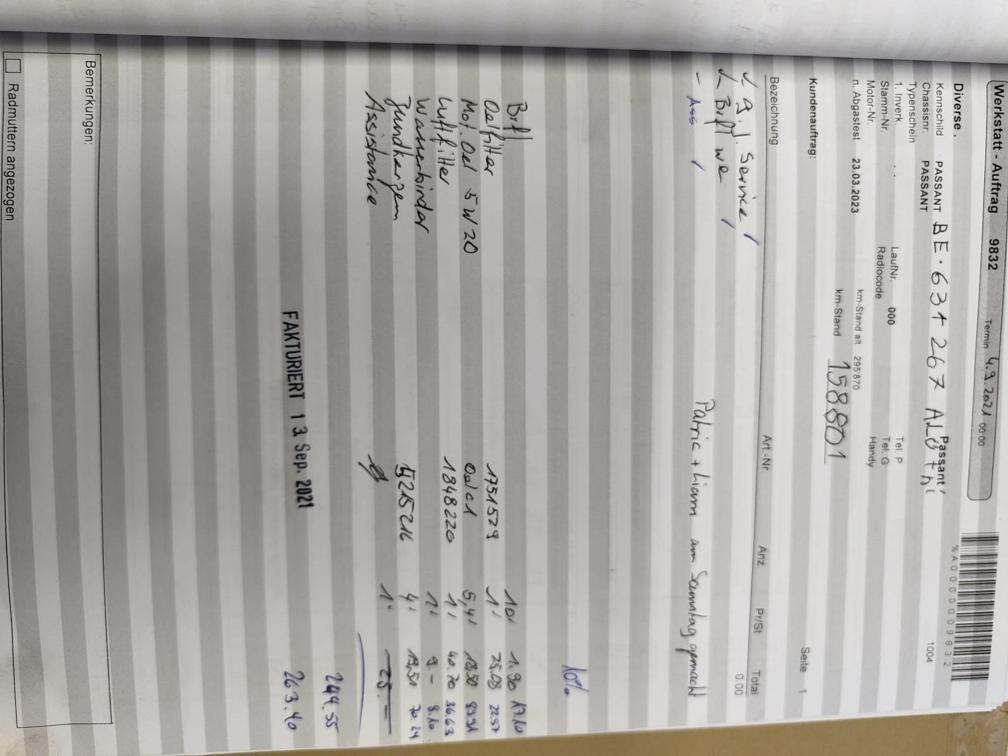 Werkstatt - Auftrag 9832 Termin 4.9.2021 00:00
%A0000009832
Diverse. Passant 1004
Kennschild PASSANT BE.631 267
Chassisnr. PASSANT
Typenschein
1. Inverk. . . LaufNr. 000 Tel. P
Stamm-Nr. Radiocode Tel. G
Motor-Nr. Handy
n. Abgastest 23.03.2023 km-Stand alt 295'870
km-Stand 158801
Kundenauftrag: Seite 1
Bezeichnung Art.-Nr Anz. Pr/St Total
0.00
Service
- Ass
Patric + Liam am Samstag gemacht
10%
Bif 10 1.90 17.10
Oelfilter 1751529 1 25.08 22.57
Mot. Oel 5W20 Oel 01
Luftfilter 1848220 1 40.70 36.63
1 9.- 8.10
Zundkerzen 5215216 4 19.51 70.24
Assistance 1 25.-
244.55
263.40
FAKTURIERT 13. Sep. 2021
Bemerkungen:
Radmuttern angezogen